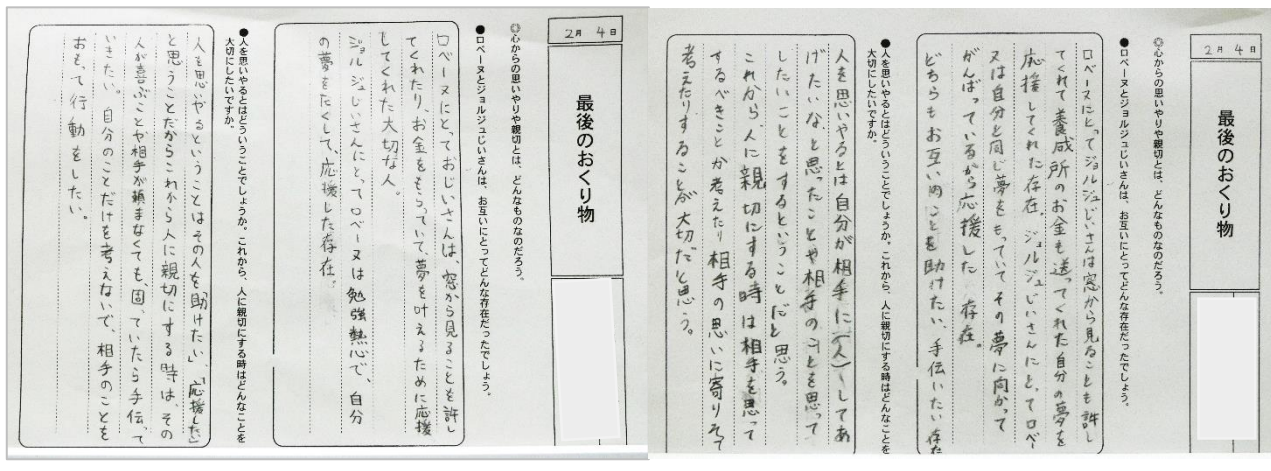 2月 4日
最後のおくり物
◎心からの思いやりや親切とは、どんなものなのだろう。
●ロベーヌとジョルジュじいさんは、お互いにとってどんな存在だったでしょう。
ロベーヌにとっておじいさんは、窓から見ることを許し
てくれたり、お金をもらっていて、夢を叶えるために応援
してくれた大切な人。
ジョルジュじいさんにとってロベーヌは勉強熱心で、自分
の夢をたくして、応援した存在。
●人を思いやるとはどういうことでしょうか。これから、人に親切にする時はどんなことを
大切にしたいですか。
人を思いやるということはその人を「助けたい」「応援したい」
と思うことだからこれから人に親切にする時は、その
人が喜ぶことや相手が頼まなくても、困っていたら手伝って
いきたい。自分のことだけを考えないで、相手のことを
おもって行動をしたい。
2月 4日
最後のおくり物
◎心からの思いやりや親切とは、どんなものなのだろう。
●ロベーヌとジョルジュじいさんは、お互いにとってどんな存在だったでしょう。
ロベーヌにとってジョルジュじいさんは窓から見ることも許し
てくれて養成所のお金も送ってくれた自分の夢を
応援してくれた存在。ジョルジュじいさんにとってロベー
ヌは自分と同じ夢をもっていてその夢に向かって
がんばっているから応援した存在。
どちらもお互いのことを助けたい、手伝いたい存在
●人を思いやるとはどういうことでしょうか。これから、人に親切にする時はどんなことを
大切にしたいですか。
人を思いやるとは自分が相手に(人)してあ
げたいなと思ったことや相手のことを思って
したいことをするということだと思う。
これから、人に親切にする時は相手を思って
するべきことか考えたり相手の思いに寄りそって
考えたりすることが大切だと思う。